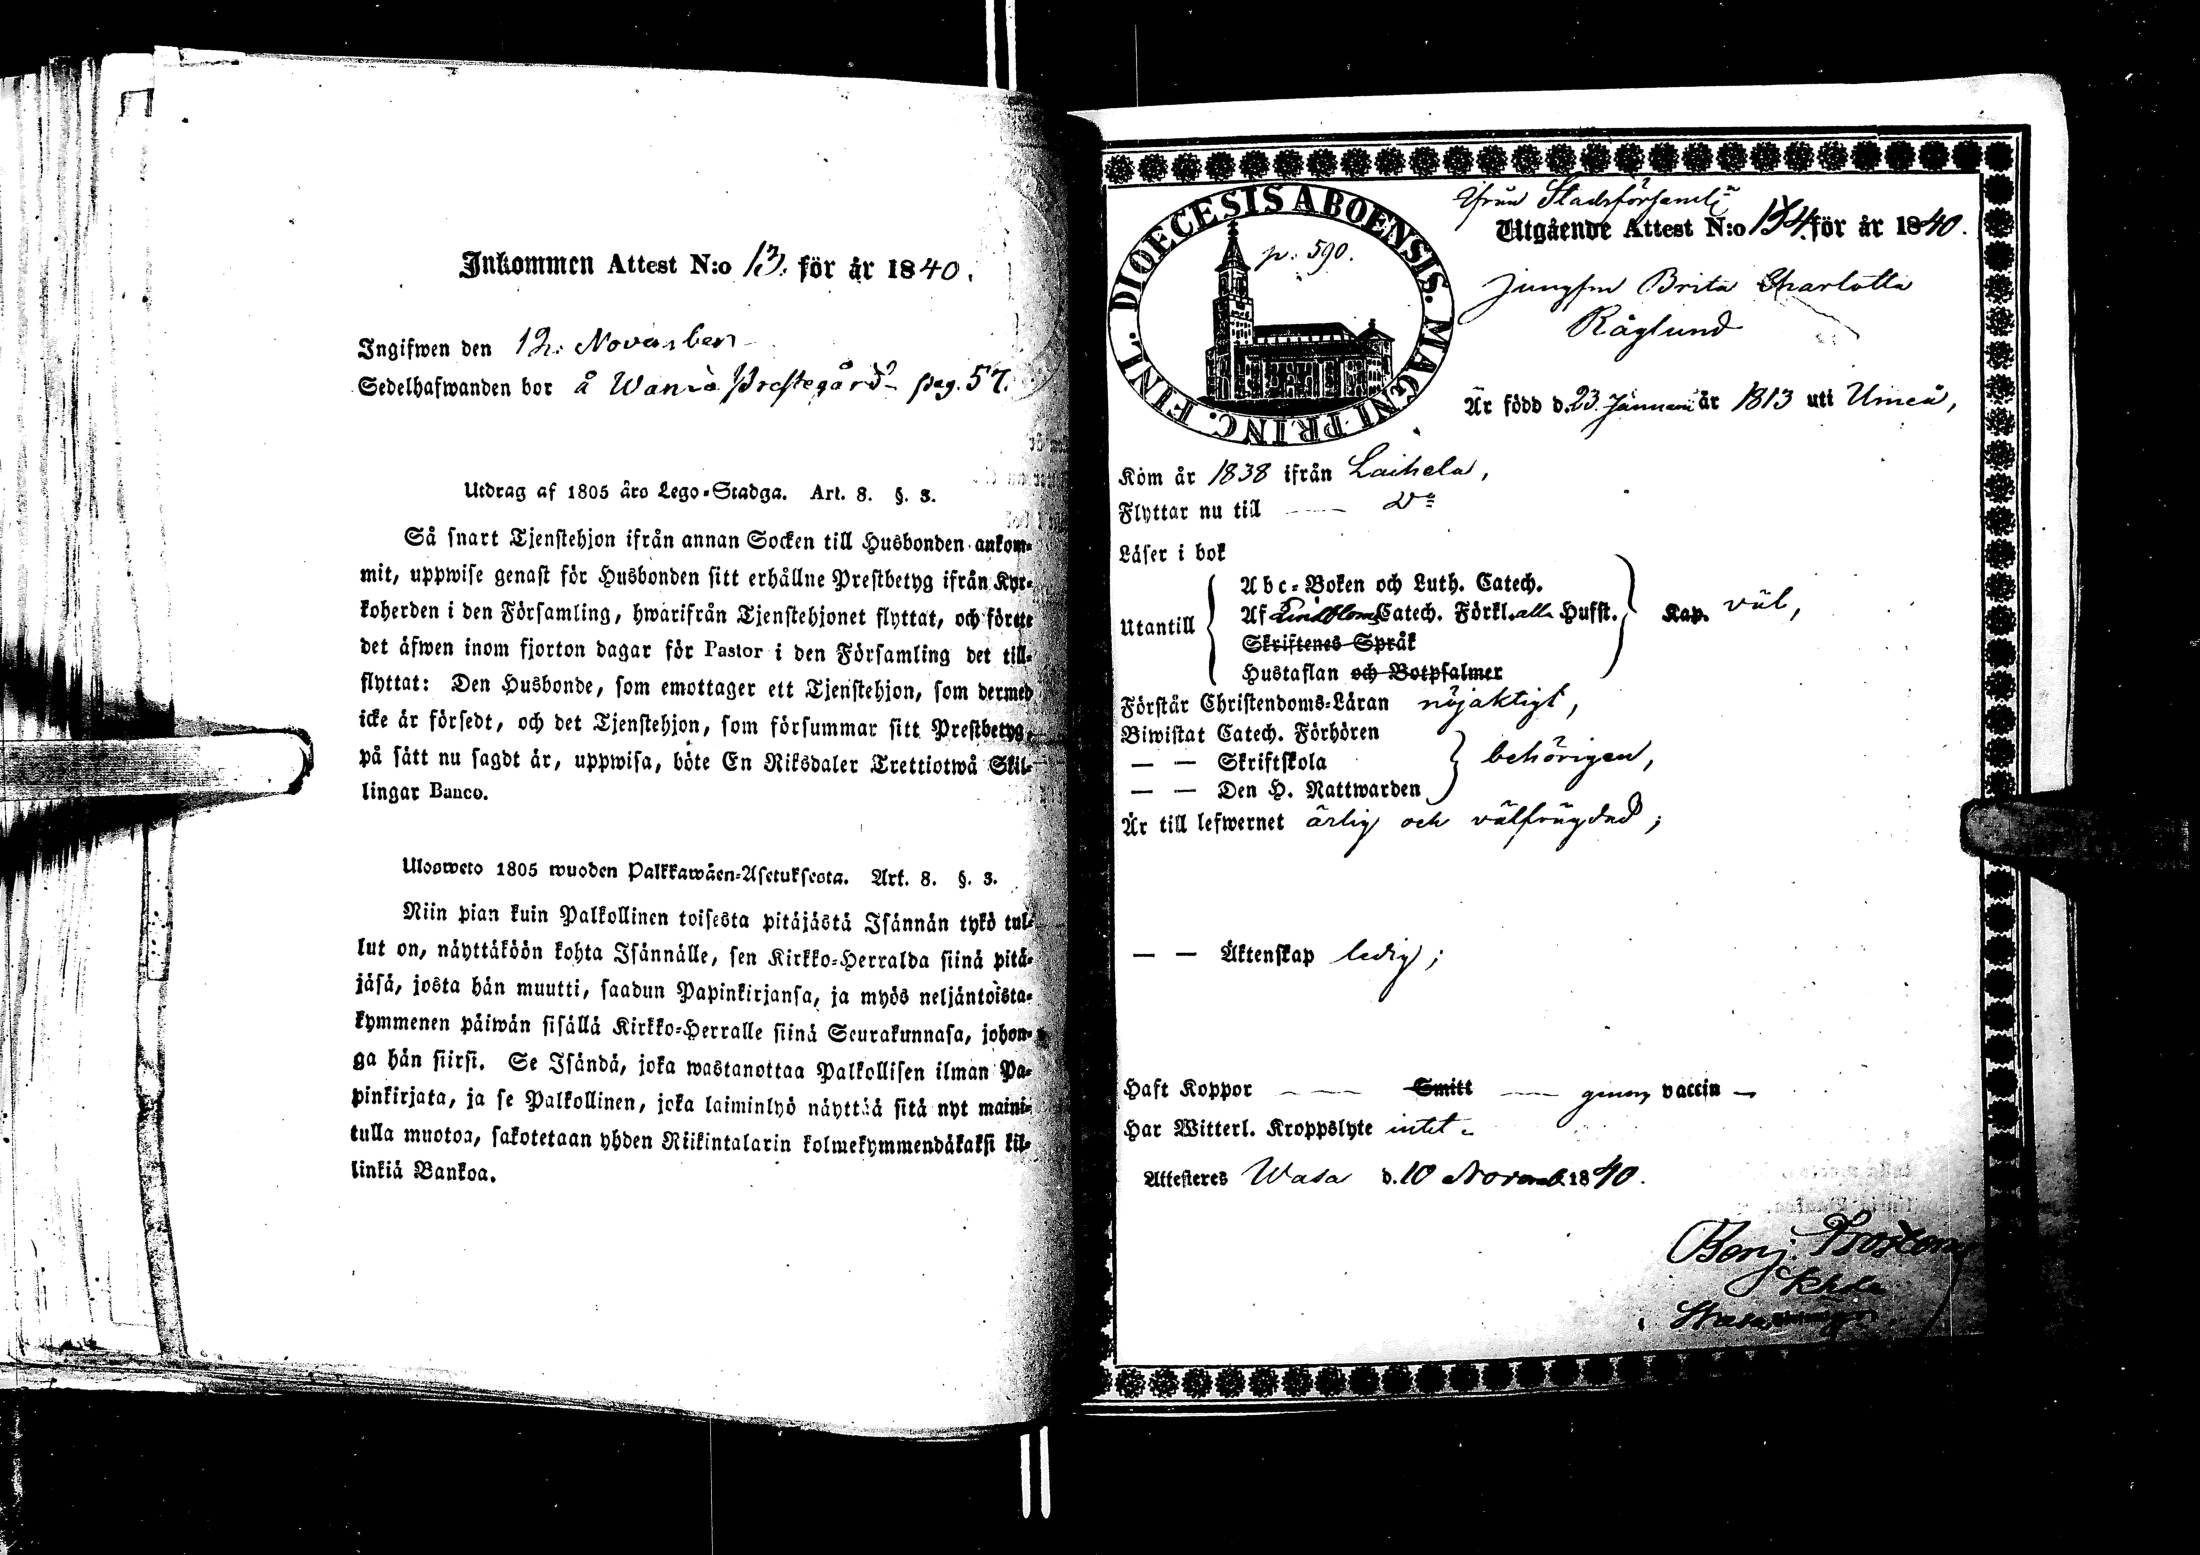 Inkommen Attest N:o 13. för år 1840.
Ingifwen den 12. November
Sedelhafwanden bor å Wanio Prestegård pag. 57.
Utdrag af 1805 års Lego-Stadga. Art. 8. §. 3.
Så snart Tjenstehjon ifrån annan Socken till Husbonden ankom-
mit, uppwise genast för Husbonden sitt erhållne Prestbetyg ifrån Kyr-
koherden i den Församling, hwarifrån Tjenstehjonet flyttat, och förete
det äfwen inom fjorton dagar för Pastor i den Församling det till-
flyttat: Den Husbonde, som emottager ett Tjenstehjon, som dermed
icke är försedt, och det Tjenstehjon, som försummar sitt Prestbetyg,
på sätt nu sagdt är, uppwisa, böte En Riksdaler Trettiotwå Skil-
lingar Banco.
Ulosweto 1805 wuoden Palkkawäen-Asetuksesta. Art. 8. §. 3.
Niin pian kuin Palkollinen toisesta pitäjästä Isännän tykö tul-
lut on, näyttäköön kohta Isännälle, sen Kirkko-Herralda siinä pitä-
jäsä, josta hän muutti, saadun Papinkirjansa, ja myös neljäntoista-
kymmenen päiwän sisällä Kirkko-Herralle siinä Seurakunnasa, johon-
ga hän siirsi. Se Isändä, joka wastanottaa Palkollisen ilman Pa-
pinkirjata, ja se Palkollinen, joka laiminlyö näyttää sitä nyt maini-
tulla muotoa, sakotetaan yhden Riikintalarin kolmekymmendäkaksi kil-
linkiä Bankoa.
DIOECESIS ABOENSIS. MAGNI PRINC. FINL.
p. 590.
ifrån Stadsförsaml:n
Utgående Attest N:o 134. för år 1840.
Jungfru Brita Charlotta
Råglund
Är född d. 23 Januari år 1813 uti Umeå,
Kom år 1838 ifrån Laihela,
Flyttar nu till —— Do
Läser i bok
Utantill
Abc-Boken och Luth. Catech.
Af Lindbloms Catech. Förkl. alla Hufst.
Skriftenes Språk
Hustaflan och Botpsalmer
Kap. väl,
Förstår Christendoms-Läran nöjaktigt,
Biwistat Catech. Förhören
— — Skriftskola
— — Den H. Nattwarden
behörigen,
Är till lefwernet ärlig och välfrägdad;
— — Äktenskap ledig;
Haft Koppor —— Smitt —— genom vaccin —
Har Witterl. Kroppslyte intet.
Attesteres Wasa d. 10 Novemb. 1840.
Benj.